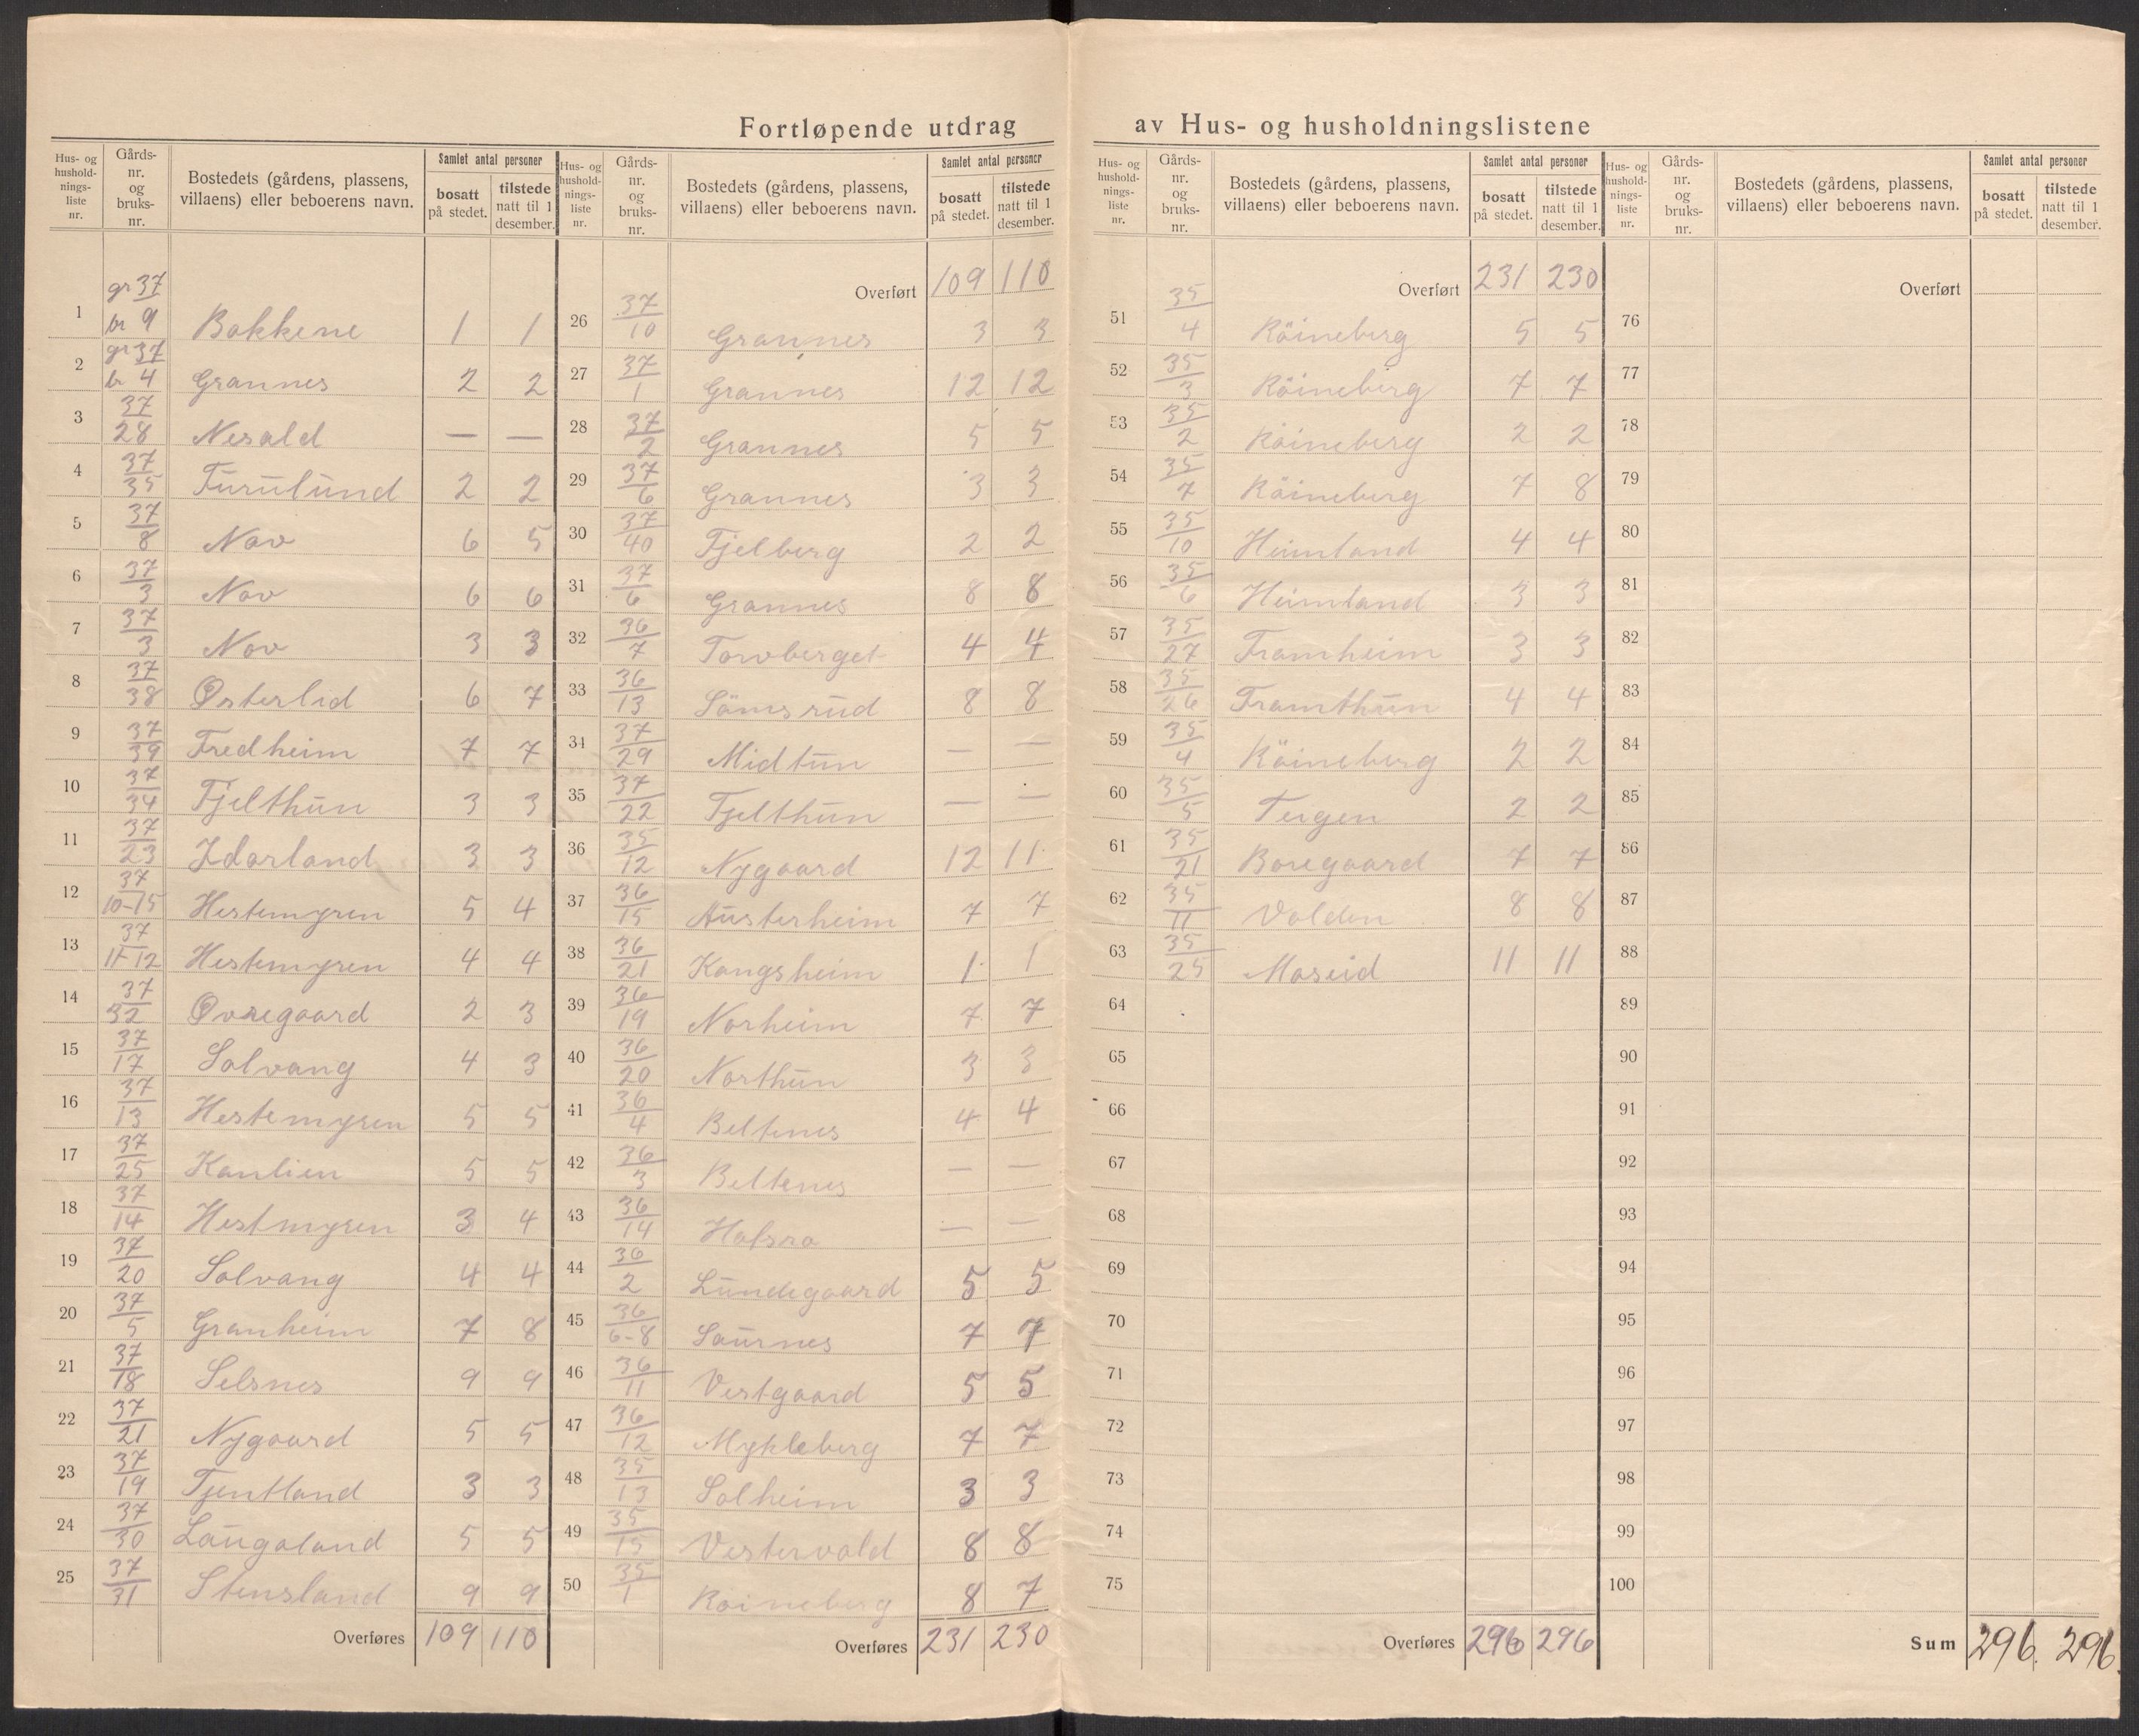 Fortløpende utdrag av Hus- og husholdningslistene
Hus- og hushold- nings- liste nr. | Gårds- nr. og bruks- nr. | Bostedets (gårdens, plassens, villaens) eller beboerens navn. | Samlet antal personer | bosatt på stedet. | tilstede natt til 1 desember.
1 gr 37 br 9 Bakkene 1 1
2 gr 37 br 4 Grannes 2 2
3 37/28 Nesald — —
4 37/35 Furulund 2 2
5 37/8 Nav 6 5
6 37/3 Nav 6 6
7 37/3 Nav 3 3
8 37/38 Østerlid 6 7
9 37/39 Fredheim 7 7
10 37/34 Fjelthun 3 3
11 37/23 Idarland 3 3
12 37/10-15 Hestemyren 5 4
13 37/11-12 Hestemyren 4 4
14 37/32 Øvregaard 2 3
15 37/17 Solvang 4 3
16 37/13 Hestemyren 5 5
17 37/25 Kanlien 5 5
18 37/14 Hestmyren 3 4
19 37/20 Solvang 4 4
20 37/5 Granheim 7 8
21 37/18 Selsnes 9 9
22 37/21 Nygaard 5 5
23 37/19 Tjentland 3 3
24 37/30 Laugaland 5 5
25 37/31 Stensland 9 9
Overføres 109 110
Hus- og hushold- nings- liste nr. | Gårds- nr. og bruks- nr. | Bostedets (gårdens, plassens, villaens) eller beboerens navn. | Samlet antal personer | bosatt på stedet. | tilstede natt til 1 desember.
Overført 109 110
26 37/10 Grannes 3 3
27 37/1 Grannes 12 12
28 37/2 Grannes 5 5
29 37/6 Grannes 3 3
30 37/40 Fjelberg 2 2
31 37/6 Grannes 8 8
32 36/7 Torvberget 4 4
33 36/13 Sömsrud 8 8
34 37/29 Midtun — —
35 37/22 Fjelthun — —
36 35/12 Nygaard 12 11
37 36/15 Austerheim 7 7
38 36/21 Kongsheim 1 1
39 36/19 Norheim 7 7
40 36/20 Northun 3 3
41 36/4 Beltenes 4 4
42 36/3 Beltenes — —
43 36/14 Hafsra — —
44 36/2 Lundegaard 5 5
45 36/6-8 Saurnes 7 7
46 36/11 Vestgaard 5 5
47 36/12 Mykleberg 7 7
48 35/13 Solheim 3 3
49 35/15 Vestervold 8 8
50 35/1 Röineberg 8 7
Overføres 231 230
Hus- og hushold- nings- liste nr. | Gårds- nr. og bruks- nr. | Bostedets (gårdens, plassens, villaens) eller beboerens navn. | Samlet antal personer | bosatt på stedet. | tilstede natt til 1 desember.
Overført 231 230
51 35/4 Röineberg 5 5
52 35/3 Röineberg 7 7
53 35/2 Röineberg 2 2
54 35/7 Röineberg 7 8
55 35/10 Heimland 4 4
56 35/6 Heimland 3 3
57 35/27 Framheim 3 3
58 35/26 Framthun 4 4
59 35/4 Röineberg 2 2
60 35/5 Teigen 2 2
61 35/21 Boregaard 7 7
62 35/11 Volden 8 8
63 35/25 Moseid 11 11
64
65
66
67
68
69
70
71
72
73
74
75
Overføres 296 296
Hus- og hushold- nings- liste nr. | Gårds- nr. og bruks- nr. | Bostedets (gårdens, plassens, villaens) eller beboerens navn. | Samlet antal personer | bosatt på stedet. | tilstede natt til 1 desember.
Overført
76
77
78
79
80
81
82
83
84
85
86
87
88
89
90
91
92
93
94
95
96
97
98
99
100
Sum 296 296